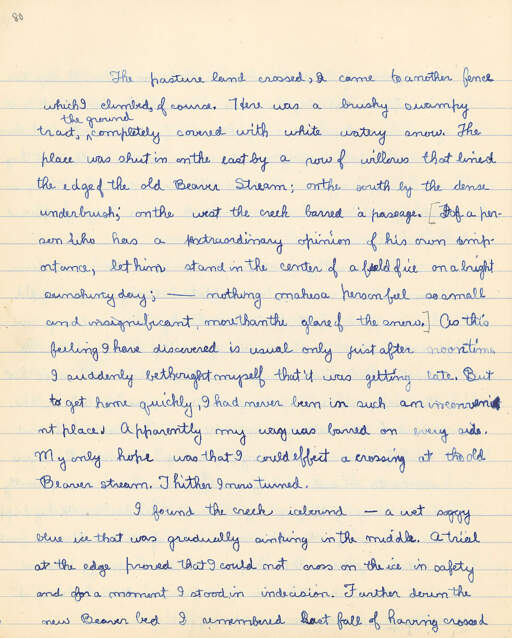 80
The pasture land crossed, I came to another fence
which I climbed, of course. Here was a brushy swampy
the ground
tract, completely covered with white watery snow. The
place was shut in on the east by a row of willows that lined
the edge of the old Beaver Stream; on the south by the dense
underbrush; on the west the creek barred a passage. [If a per-
son who has a extraordinary opinion of his own imp-
ortance, let him stand in the center of a field of ice on a bright
sunshiny day; — nothing makes a person feel so small
and insignificant, more than the glare of the snow.] As this
feeling I have discovered is usual only just after noontime
I suddenly bethought myself that it was getting late. But
to get home quickly, I had never been in such an inconvenie
nt place. Apparently my way was barred on every side.
My only hope was that I could effect a crossing at the old
Beaver stream. Thither I now turned.
I found the creek icebound — a wet soggy
blue ice that was gradually sinking in the middle. A trial
at the edge proved that I could not cross on the ice in safety
and for a moment I stood in indecision. Further down the
new Beaver bed I remembered last fall of having crossed